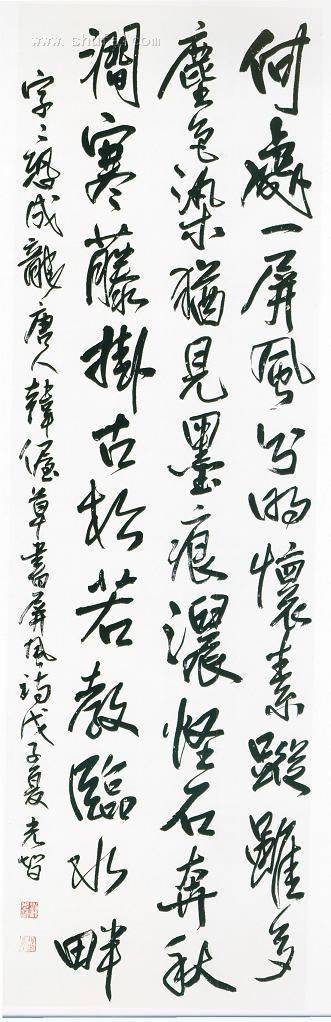 何處一屏風分明懷素蹤雖多
塵色染猶見墨痕濃怪石奔秋
澗寒藤掛古松若教臨水畔
字〻恐成龍唐人韓偓草書屏風詩戊子夏光智